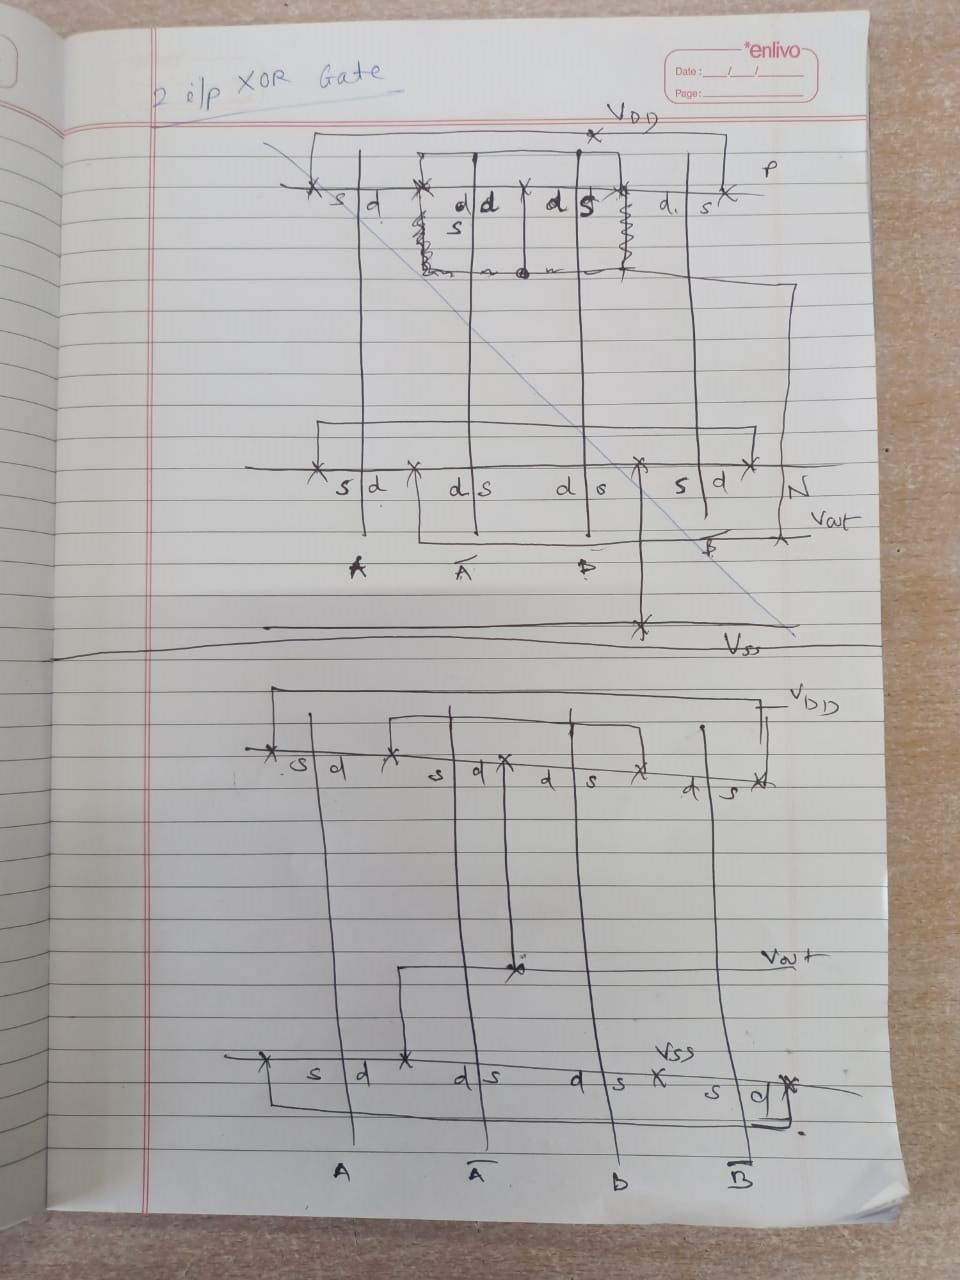 *enlivo
Date: ___/___/______
Page: ____________
2 i/p XOR Gate
VDD
P
s d d d d s d. s
s
s d d s d s s d N
Vout
A A̅ B B̅
Vss
VDD
s d s d d s d s
Vout
Vss
s d d s d s s d
A A̅ B B̅